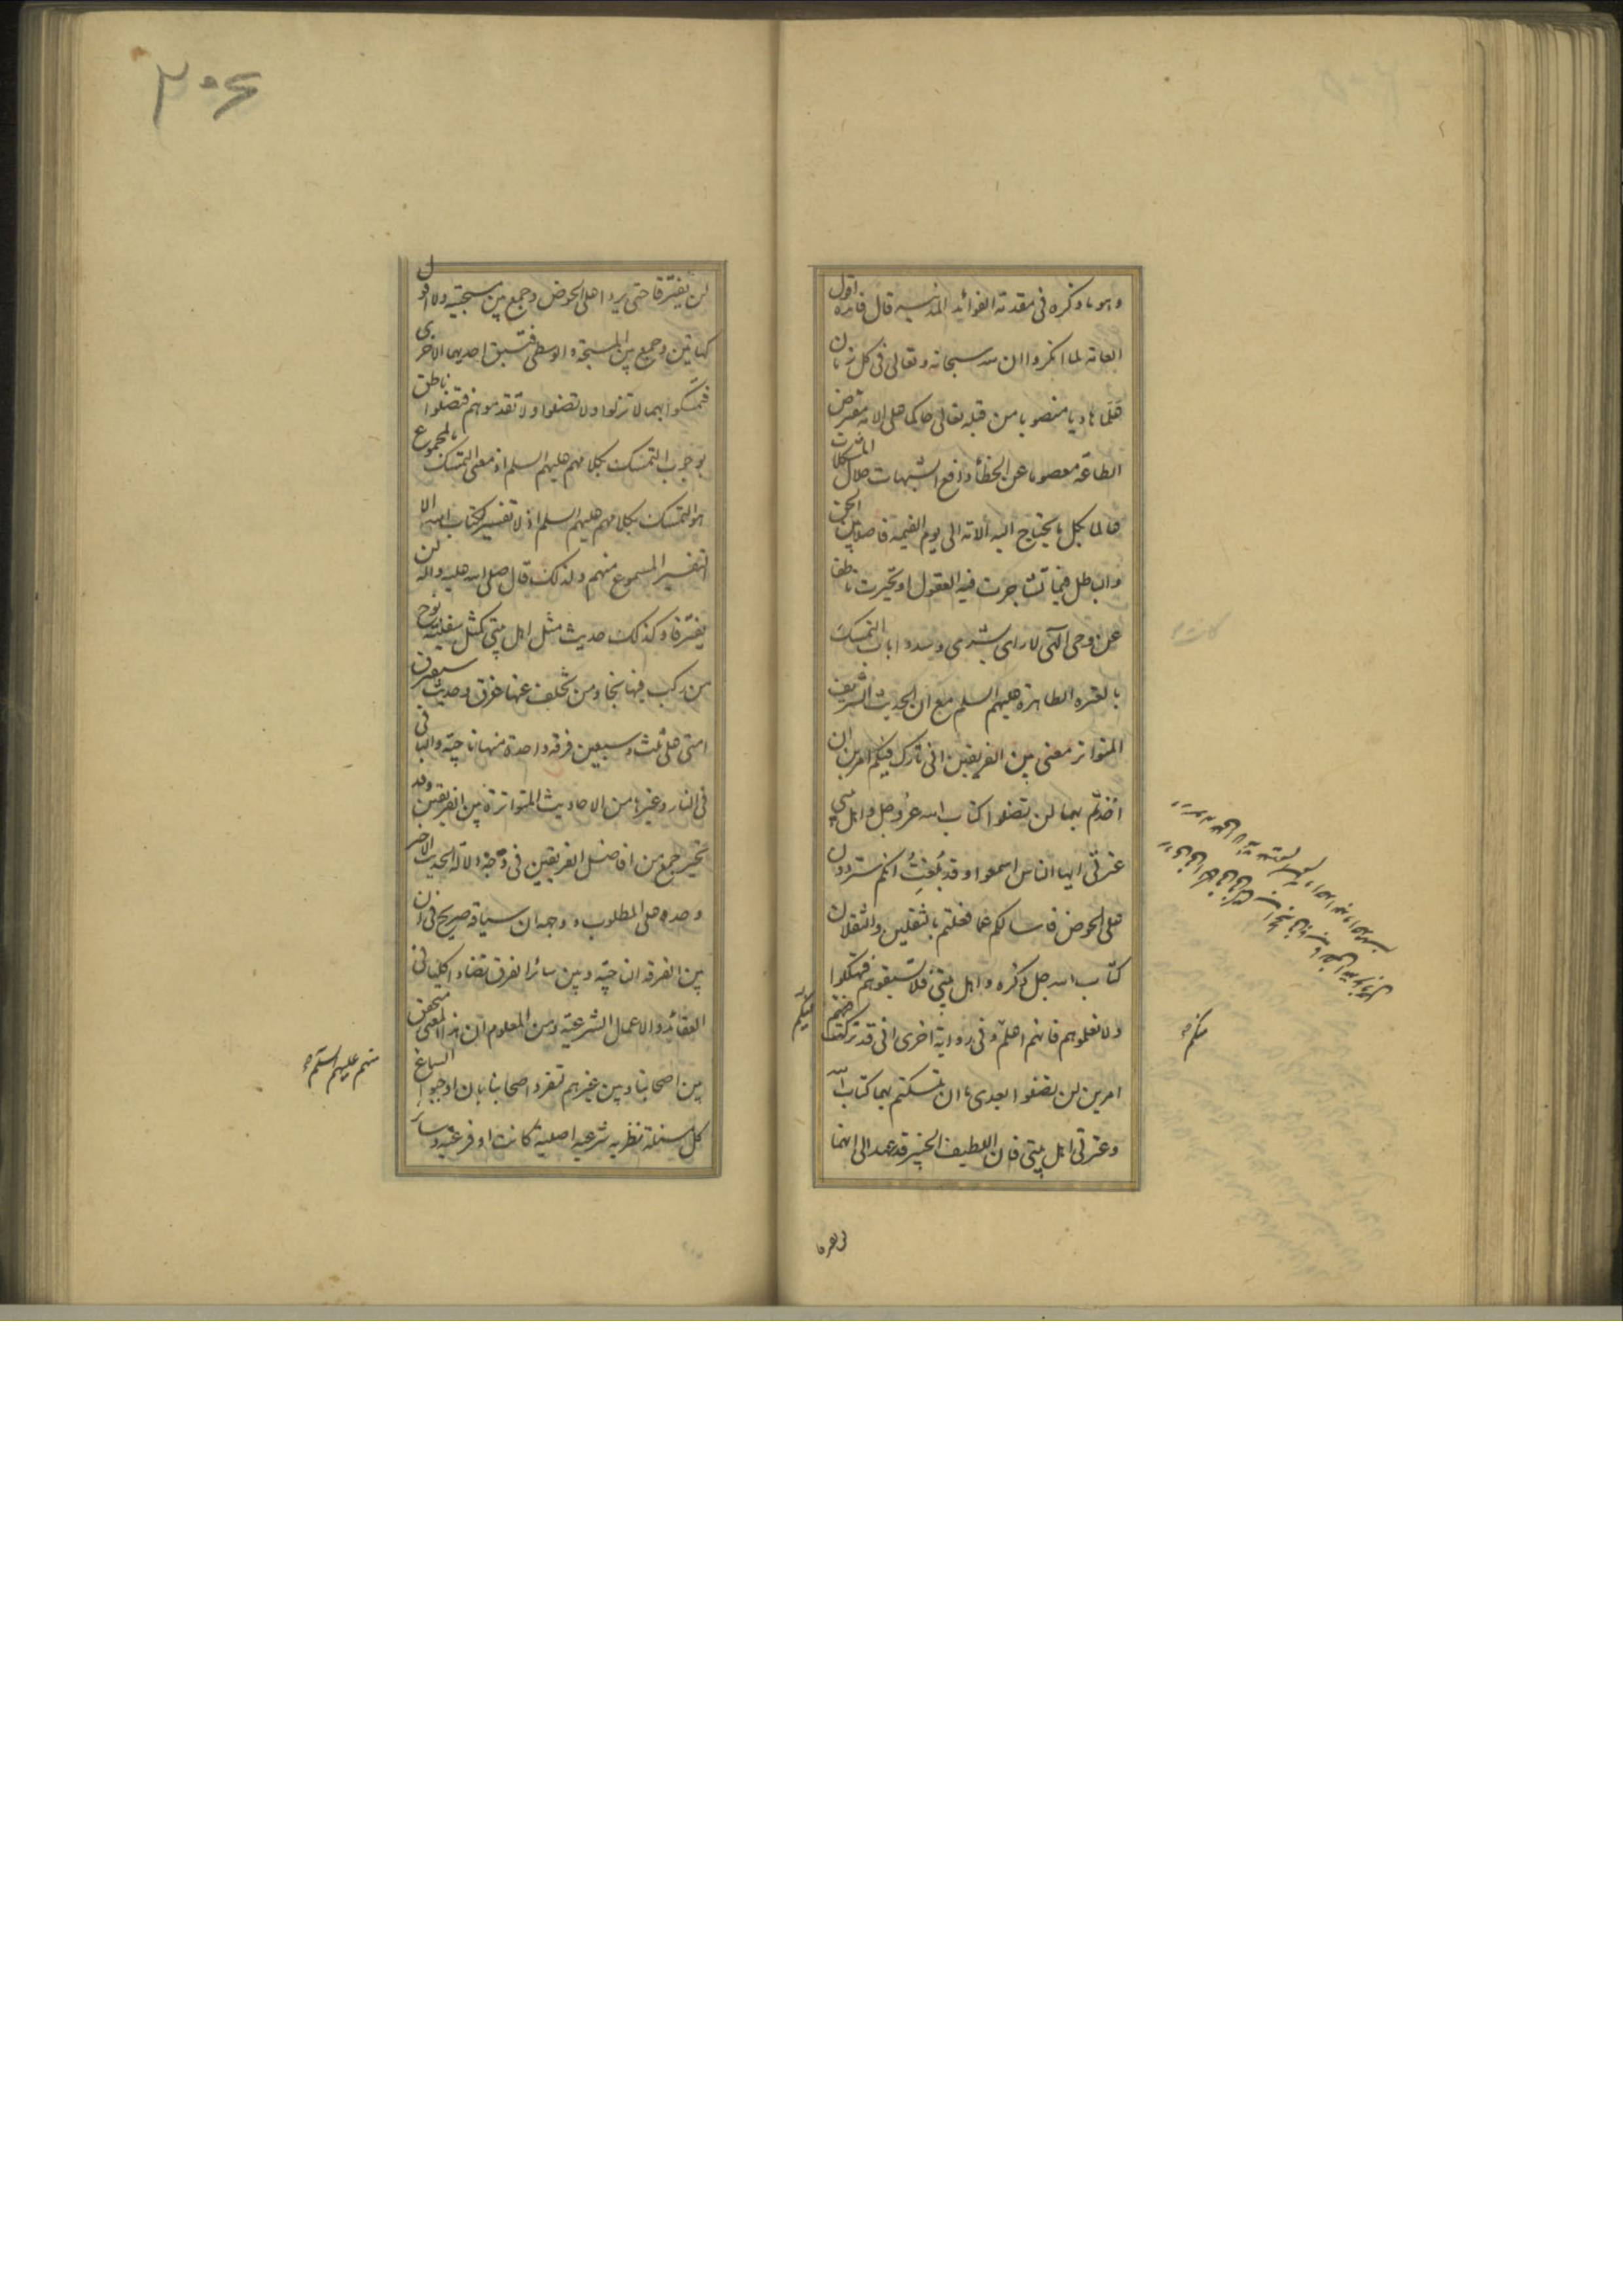 وهو ما ذكره في مقدمة الفوائد المدنيه قال فائدة اقول
العامة لما انكروا ان لله سبحانه وتعالى في كل زمان
قيما هاديا منصوبا من قبله تعالى حاكما على الامة مفترض
الطاعة معصوما عن الخطأ دافع الشبهات حلال المشكلات
عالما بكل ما يحتاج اليه الامة الى يوم القيمة فاصلا بين الحق
والباطل فيما تشاجرت فيه العقول او تحيرت ناطقا
عن وحي الهي لا رأي بشري وسدوا باب التمسك
بالعترة الطاهرة عليهم السلم مع ان الحديث الشريف
المتواتر معنى بين الفريقين اني تارك فيكم امرين ان
اخذتم بهما لن تضلوا كتاب الله عز وجل واهل بيتي
عترتي ايها الناس اسمعوا وقد بلغت انكم ستردون
على الحوض فاسالكم عما فعلتم بالثقلين والثقلان
كتاب الله جل ذكره واهل بيتي فلا تسبقوهم فتهلكوا
ولا تعلموهم فانهم اعلم وفي رواية اخرى اني قد تركت فيكم
امرين لن تضلوا بعدي ما ان تمسكتم بهما كتاب الله
وعترتي اهل بيتي فان اللطيف الخبير قد عهد الى انهما
لن يفترقا
منكم
٣٠٤
لن يفترقا حتى يردا على الحوض وجمع بين مسبحتيه ولا اقول
كهاتين وجمع بين المسبحة والوسطى فتسبق احديهما الاخرى
فتمسكوا بهما لا تزلوا ولا تضلوا ولا تقدموهم فتضلوا ناطق
بوجوب التمسك بكلامهم عليهم السلم اذ معنى التمسك بالمجموع
هو التمسك بكلامهم عليهم السلم اذ لا تفسير لكتاب الله الا
التفسير المسموع منهم ولذلك قال صلى الله عليه واله لن
يفترقا وكذلك حديث مثل اهل بيتي كمثل سفينة نوح
من ركب فيها نجا ومن تخلف عنها غرق وحديث ستفترق
امتي على ثلث وسبعين فرقة واحدة منها ناجية والباقي
في النار وغيرها من الاحاديث المتواترة بين الفريقين وقد
تحير جمع من افاضل الفريقين في وجه دلالة الحديث الاخير
وحده على المطلوب ووجهه ان سياقه صريح في ان
بين الفرقة الناجية وبين سائر الفرق تضادا كليا في
العقائد والاعمال الشرعية ومن المعلوم ان هذا المعنى متحقق
بين اصحابنا وبين غيرهم تفرد اصحابنا بان اوجبوا السماع
كل مسئلة نظرية شرعية اصلية كانت او فرعية وسائر
منهم عليهم السلم